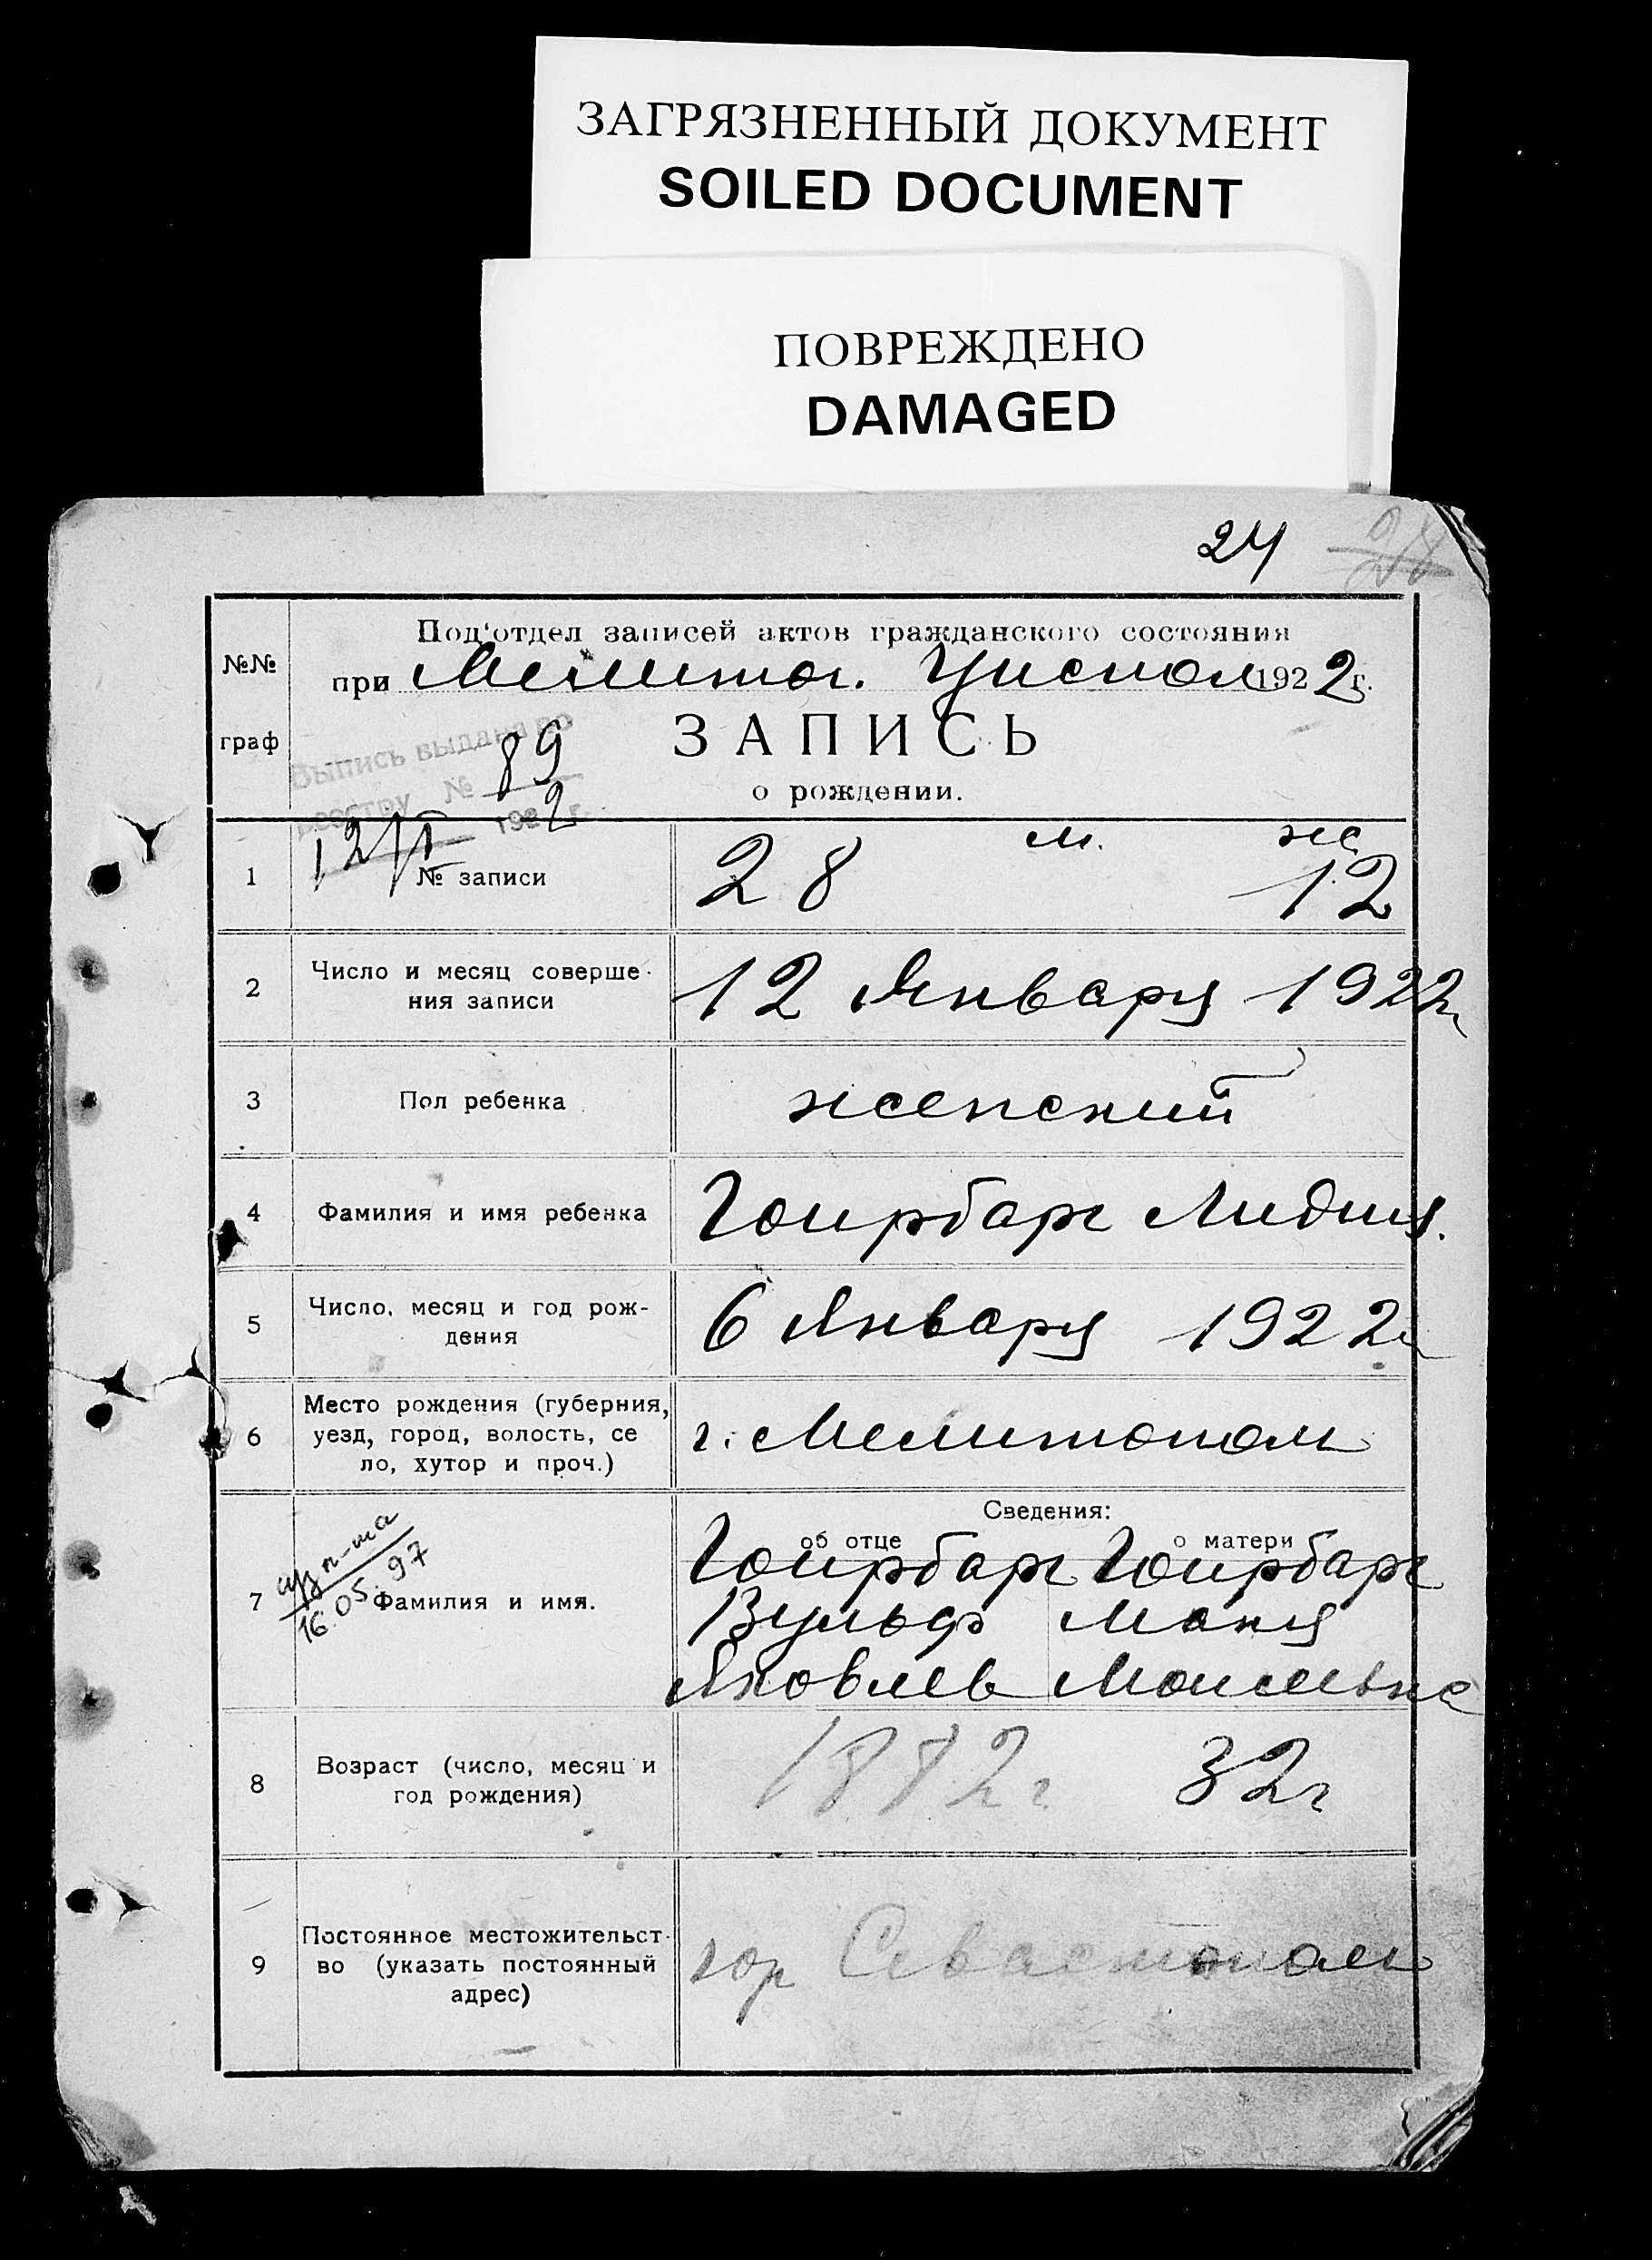 ЗАГРЯЗНЕННЫЙ ДОКУМЕНТ
SOILED DOCUMENT
ПОВРЕЖДЕНО
DAMAGED
24
№№ граф
Под'отдел записей актов гражданского состояния
при Мелитоп. Уиспол 1922 г.
Выпись выдана по
реестру № 89
12/I 1922 г.
ЗАПИСЬ
о рождении.
1 № записи 28 м. ж. 12
2 Число и месяц соверше-
ния записи 12 Январу 1922г
3 Пол ребенка женский
4 Фамилия и имя ребенка Гоирбарг Лидия.
5 Число, месяц и год рож-
дения 6 Январу 1922г
6 Место рождения (губерния,
уезд, город, волость, се
ло, хутор и проч.) г. Мелитополь
Сведения:
об отце о матери
7 Фамилия и имя. Гоирбарг Гоирбарг
Вульф Маня
Яковлев Моисеевна
16.05.97
8 Возраст (число, месяц и
год рождения) 1882г 32г
9 Постоянное местожительст-
во (указать постоянный
адрес) гор Севастополь